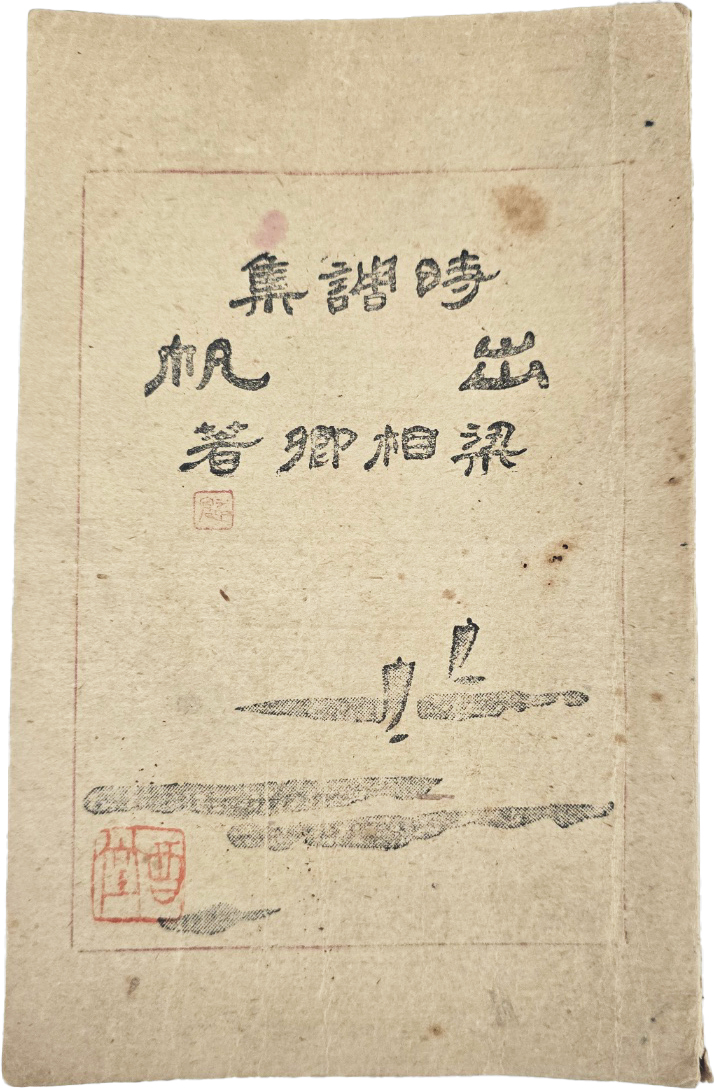 時調集
出帆
梁相卿著